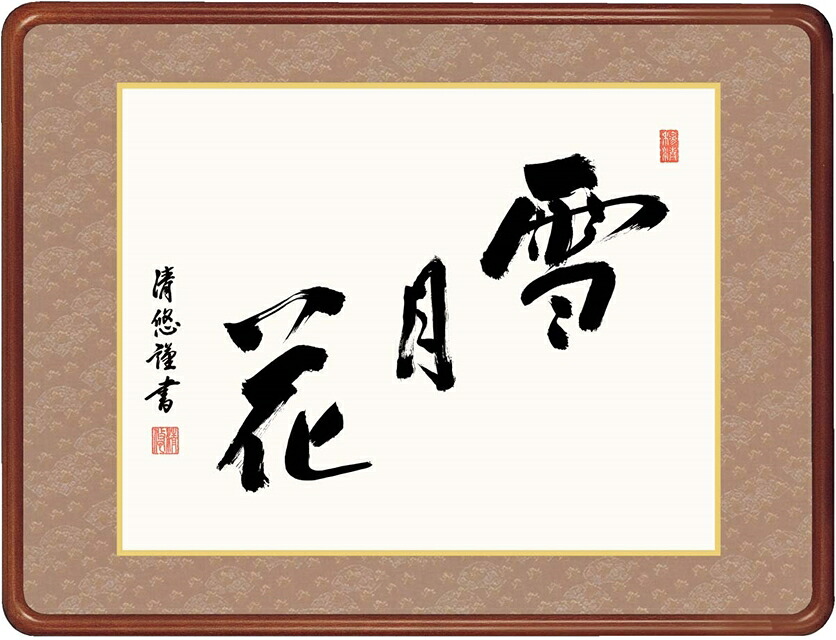 雪月花
清悠謹書